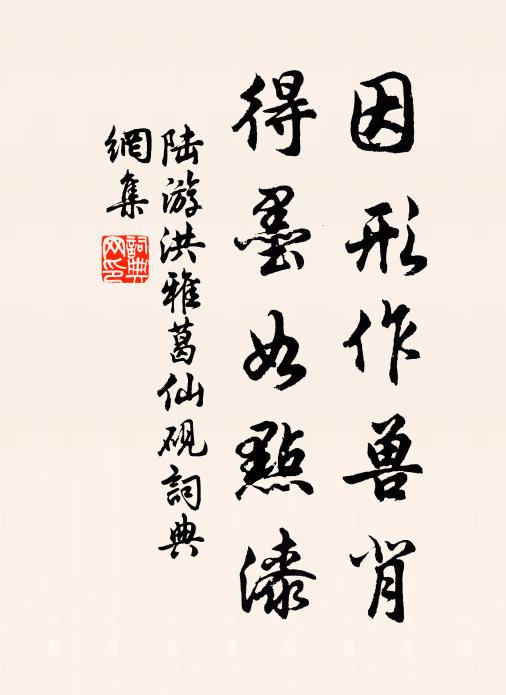 因形作兽肖
得墨如點漆
陆游洪雅葛仙砚詞典
網集
詞典
网印